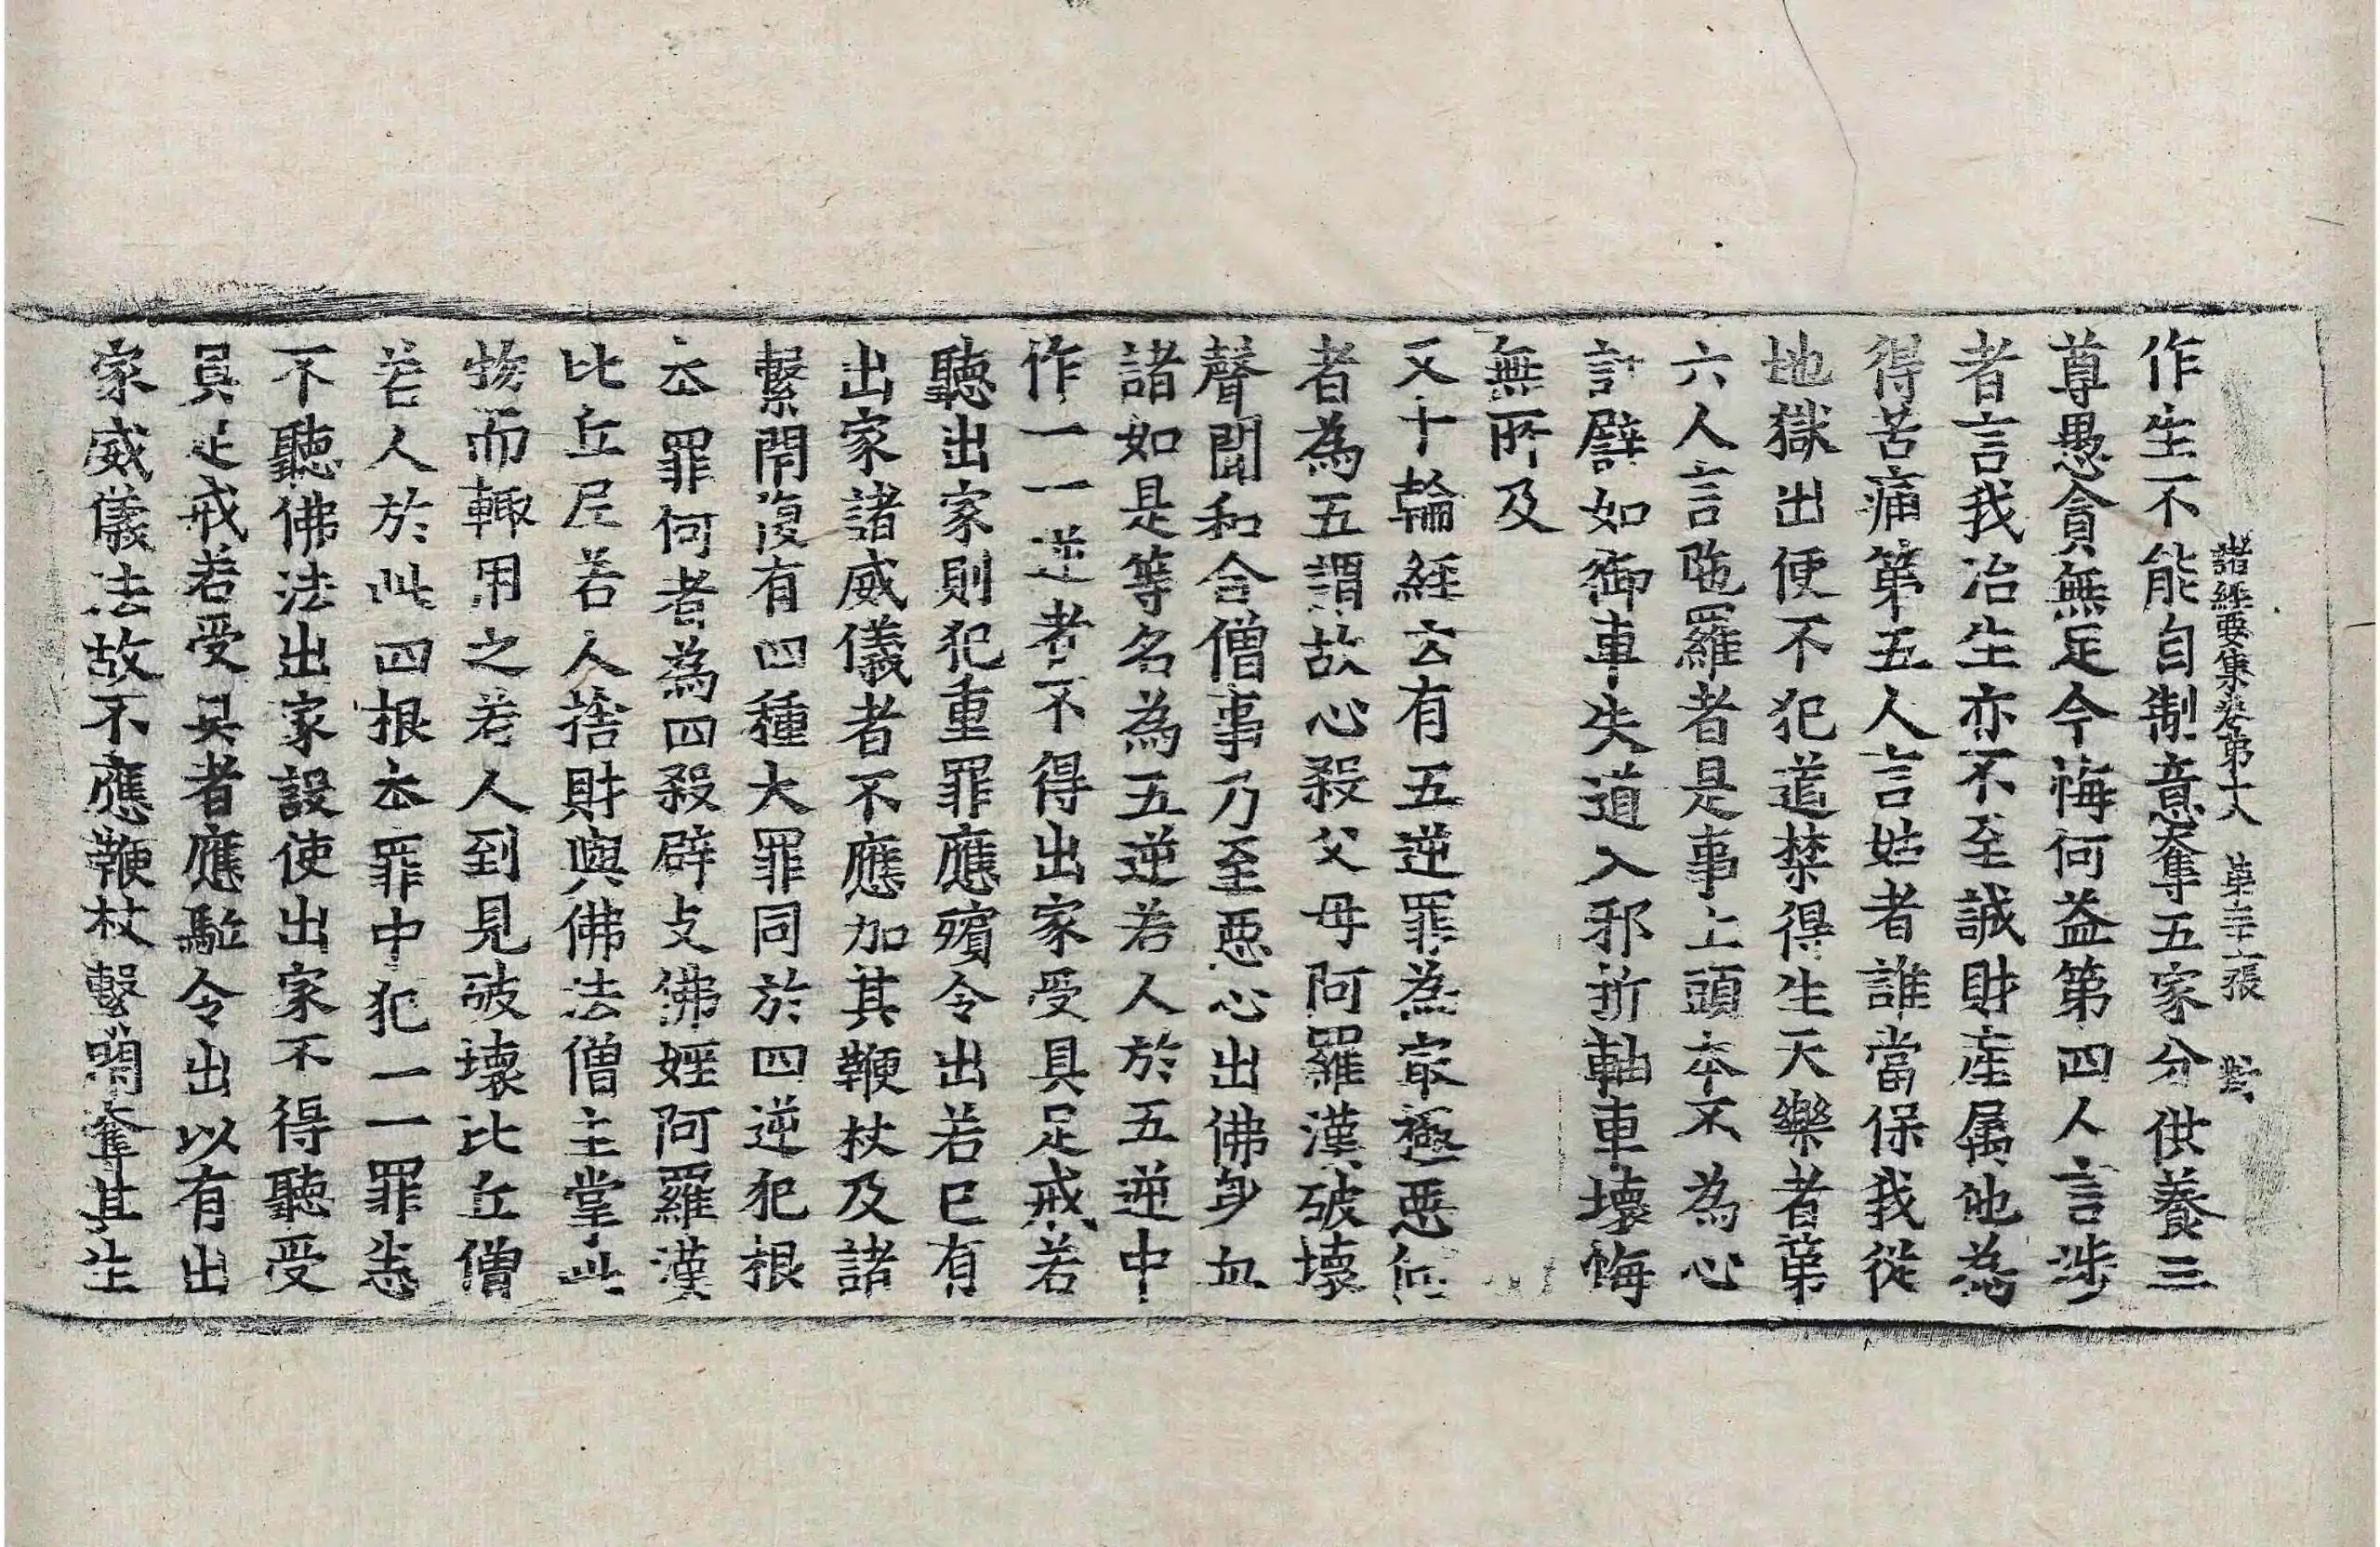 諸經要集卷第十八 第三十二張 對
作生不能自制意奪五家分供養三
尊愚貪無足今悔何益第四人言涉
者言我治生亦不至誠財產属他為
得苦痛第五人言姑者誰當保我從
地獄出便不犯道禁得生天樂者第
六人言陁羅者是事上頭本不為心
計譬如御車失道入邪折軸車壞悔
無所及
又十輪經云有五逆罪為㝡極惡何
者為五謂故心殺父母阿羅漢破壞
聲聞和合僧事乃至惡心出佛身血
諸如是等名為五逆若人於五逆中
作一一逆者不得出家受具足戒若
聽出家則犯重罪應殯令出若已有
出家諸威儀者不應加其鞭杖及諸
繫閉復有四種大罪同於四逆犯根
夲罪何者為四殺辟支佛婬阿羅漢
比丘尼若人捨財與佛法僧主掌此
物而輙用之若人到見破壞比丘僧
若人於此四根夲罪中犯一一罪悉
不聽佛法出家設使出家不得聽受
具足戒若受具者應駈令出以有出
家威儀法故不應鞭杖繫閉奪其生